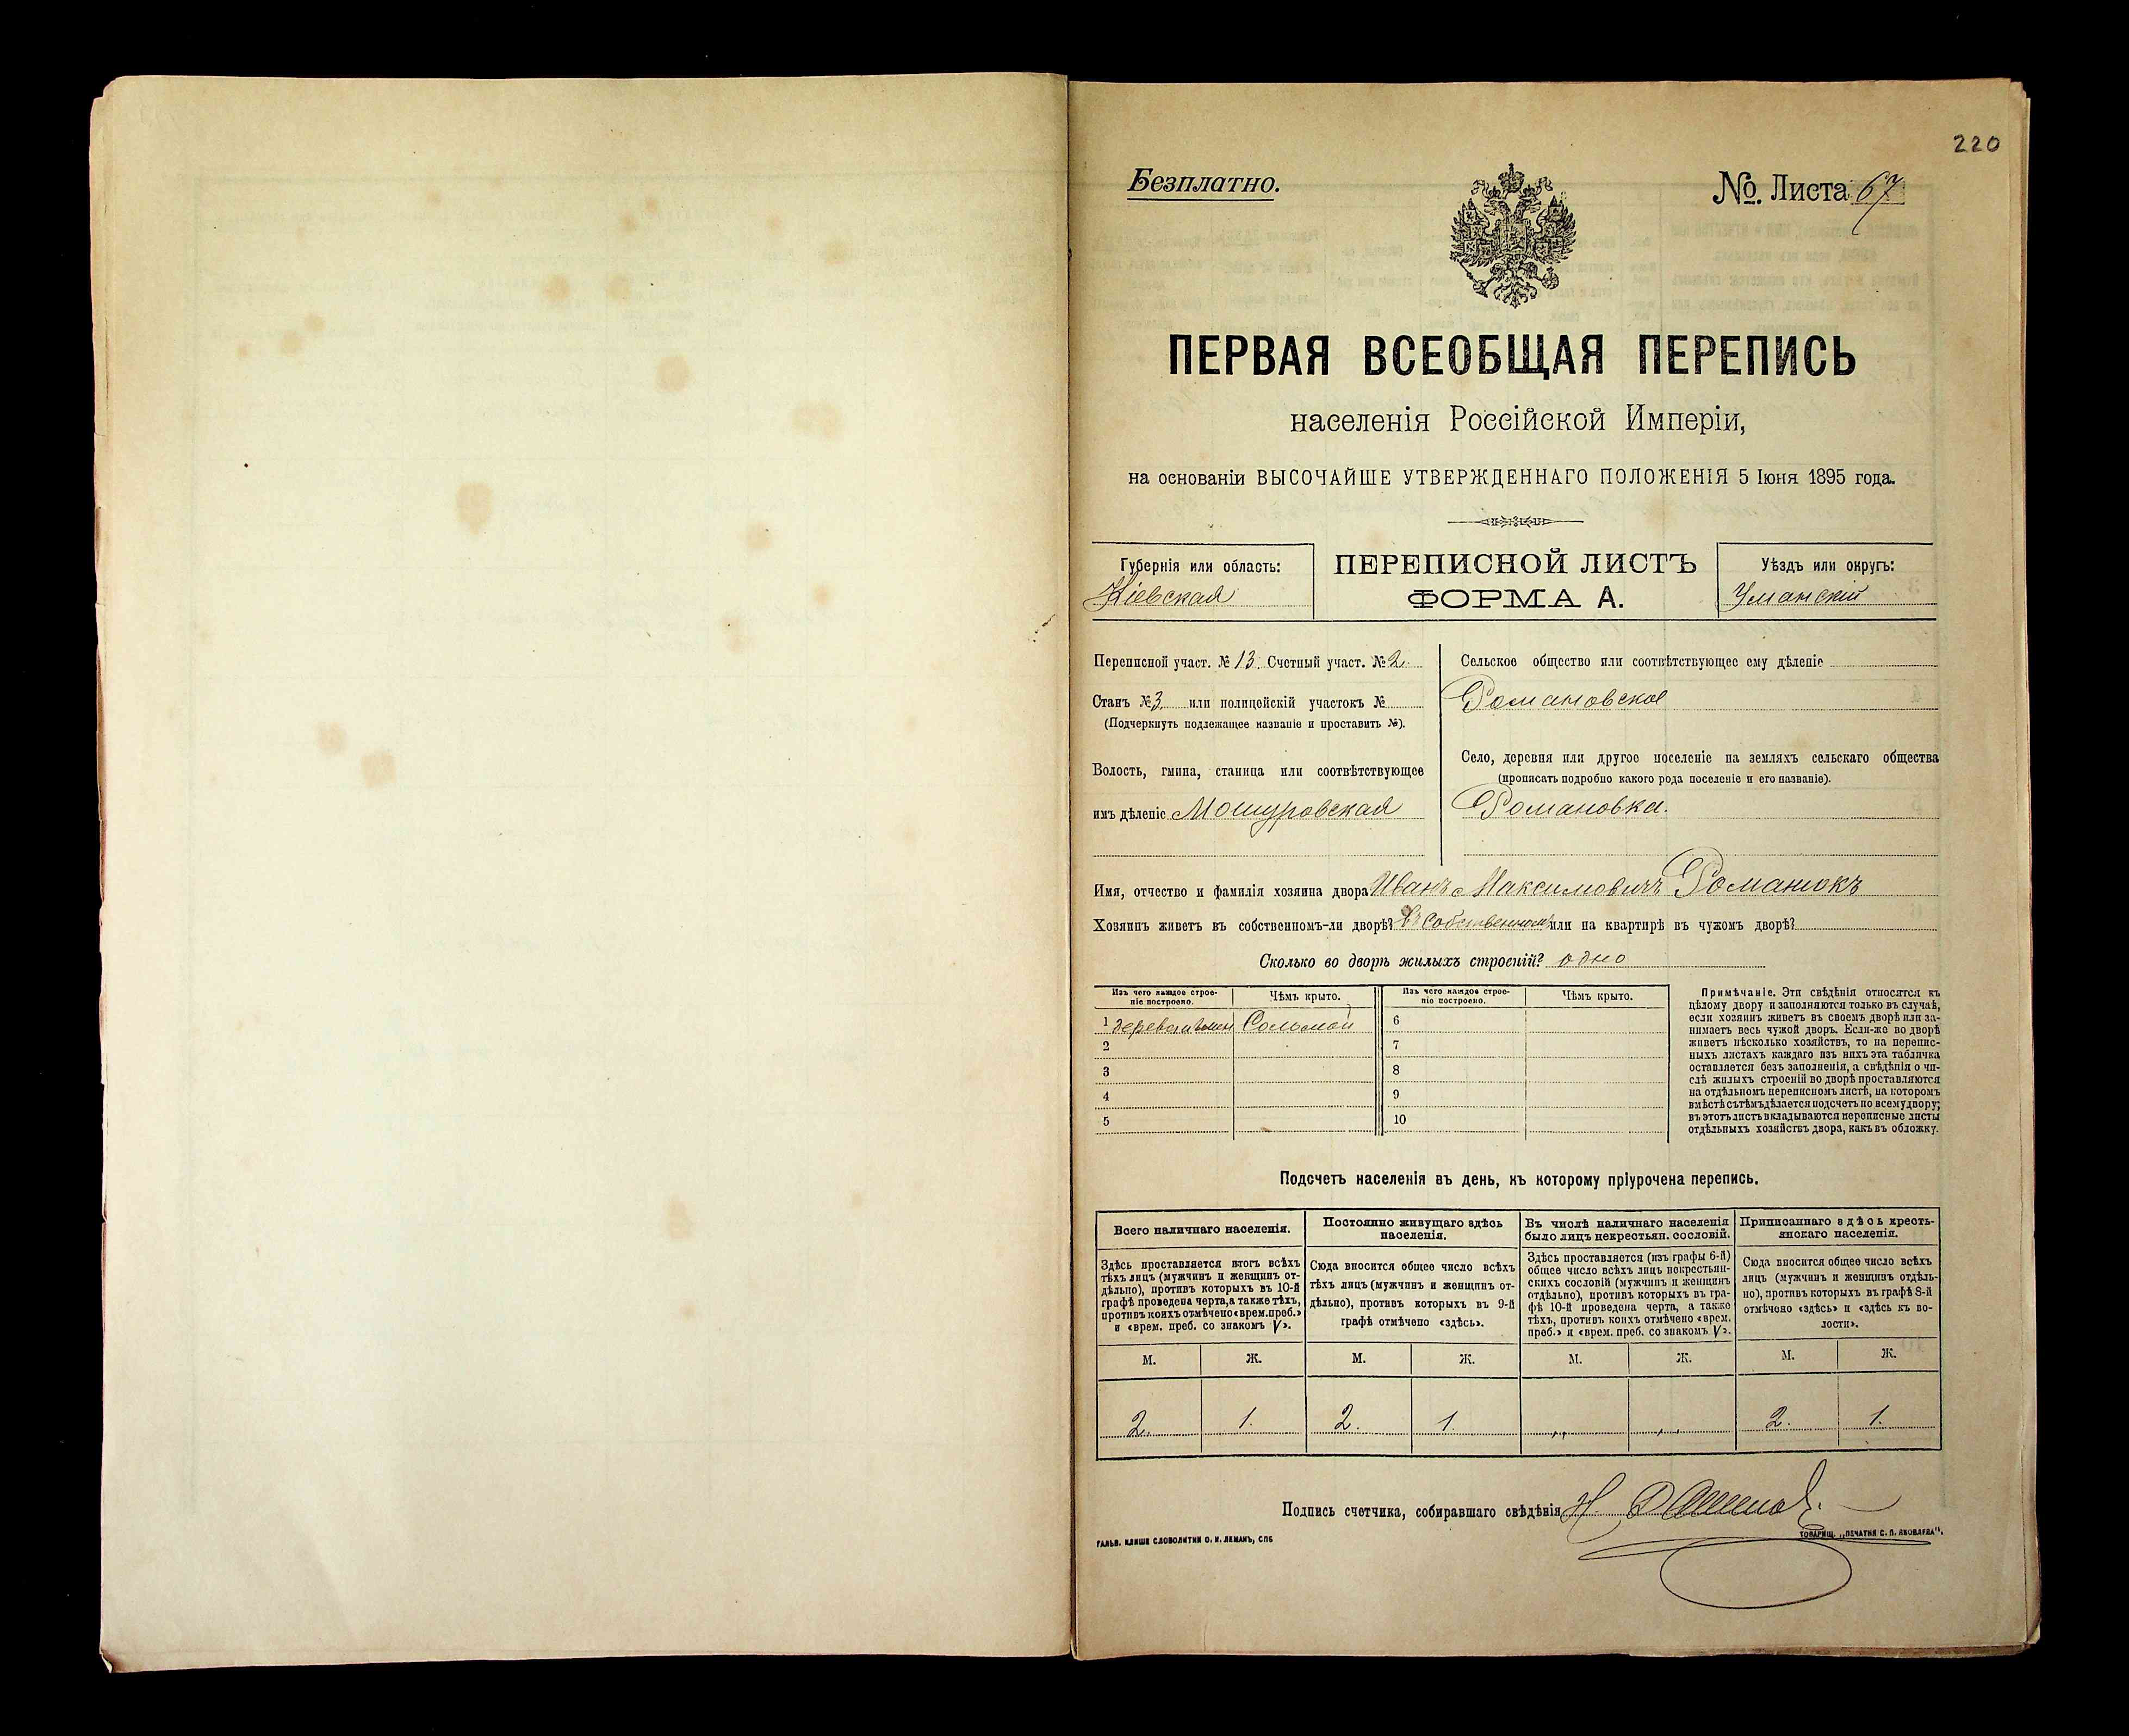 220
Безплатно.
№. Листа 67
ПЕРВАЯ ВСЕОБЩАЯ ПЕРЕПИСЬ
населенія Россійской Имперіи,
на основаніи ВЫСОЧАЙШЕ УТВЕРЖДЕННАГО ПОЛОЖЕНІЯ 5 Іюня 1895 года.
Губернія или область:
Кіевская
ПЕРЕПИСНОЙ ЛИСТЪ
ФОРМА А.
Уѣздъ или округъ:
Уманскій
Переписной участ. № 13. Счетный участ. № 2.
Станъ № 3 или полицейскій участокъ №
(Подчеркнуть подлежащее названіе и проставить №).
Волость, гмина, станица или соотвѣтствующее
имъ дѣленіе Мошуровская
Сельское общество или соотвѣтствующее ему дѣленіе
Романовское
Село, деревня или другое поселеніе на земляхъ сельскаго общества
(прописать подробно какого рода поселеніе и его названіе).
Романовка.
Имя, отчество и фамилія хозяина двора Иванъ Максимовичъ Романюкъ
Хозяинъ живетъ въ собственномъ-ли дворѣ? въ собственномъ или на квартирѣ въ чужомъ дворѣ?
Сколько во дворѣ жилыхъ строеній? одно
Изъ чего каждое строеніе построено.
Чѣмъ крыто.
Изъ чего каждое строеніе построено.
Чѣмъ крыто.
1 Соломой 6
2 7
3 8
4 9
5 10
Примѣчаніе. Эти свѣдѣнія относятся къ
цѣлому двору и заполняются только въ случаѣ,
если хозяинъ живетъ въ своемъ дворѣ или за-
нимаетъ весь чужой дворъ. Если-же во дворѣ
живетъ нѣсколько хозяйствъ, то на перепис-
ныхъ листахъ каждаго изъ нихъ эта табличка
оставляется безъ заполненія, а свѣдѣнія о чи-
слѣ жилыхъ строеній во дворѣ проставляются
на отдѣльномъ переписномъ листѣ, на которомъ
вмѣстѣ съ тѣмъ дѣлается подсчетъ по всему двору;
въ этотъ листъ вкладываются переписные листы
отдѣльныхъ хозяйствъ двора, какъ въ обложку.
Подсчетъ населенія въ день, къ которому пріурочена перепись.
Всего наличнаго населенія.
Здѣсь проставляется итогъ всѣхъ
тѣхъ лицъ (мужчинъ и женщинъ от-
дѣльно), противъ которыхъ въ 10-й
графѣ проведена черта, а также тѣхъ,
противъ коихъ отмѣчено «врем. преб.»
и «врем. преб. со знакомъ V».
Постоянно живущаго здѣсь
населенія.
Сюда вносится общее число всѣхъ
тѣхъ лицъ (мужчинъ и женщинъ от-
дѣльно), противъ которыхъ въ 9-й
графѣ отмѣчено «здѣсь».
Въ числѣ наличнаго населенія
было лицъ некрестьян. сословій.
Здѣсь проставляется (изъ графы 6-й)
общее число всѣхъ лицъ некрестьян-
скихъ сословій (мужчинъ и женщинъ
отдѣльно), противъ которыхъ въ гра-
фѣ 10-й проведена черта, а также
тѣхъ, противъ коихъ отмѣчено «врем.
преб.» и «врем. преб. со знакомъ V».
Приписаннаго здѣсь кресть-
янскаго населенія.
Сюда вносится общее число всѣхъ
лицъ (мужчинъ и женщинъ отдѣль-
но), противъ которыхъ въ графѣ 8-й
отмѣчено «здѣсь» и «здѣсь къ во-
лости».
М. Ж. М. Ж. М. Ж. М. Ж.
2. 1. 2. 1. „ „ 2. 1.
Подпись счетчика, собиравшаго свѣдѣнія
ГАЛЬВ. КЛИШЕ СЛОВОЛИТНИ О. И. ЛЕМАНЪ, СПБ
ТОВАРИЩ. „ПЕЧАТНЯ С. П. ЯКОВЛЕВА".